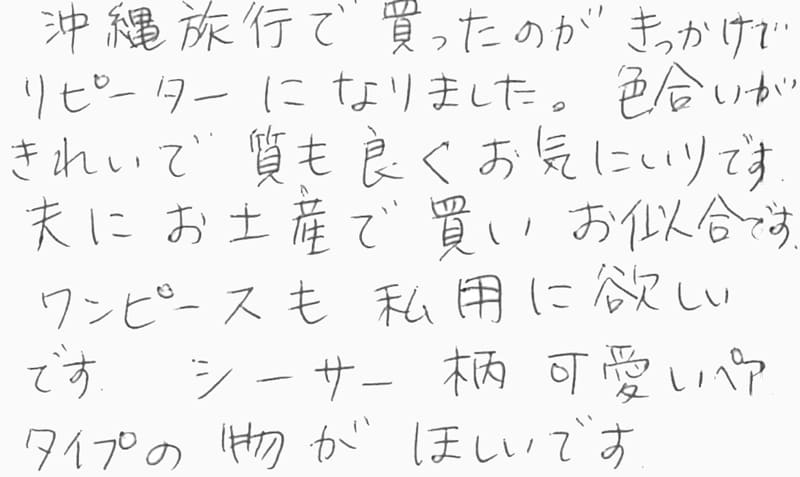 沖縄旅行で買ったのがきっかけで
リピーターになりました。色合いが
きれいで質も良くお気にいりです.
夫にお土産で買いお似合です.
ワンピースも私用に欲しい
です. シーサー柄可愛いペア
タイプの物がほしいです.